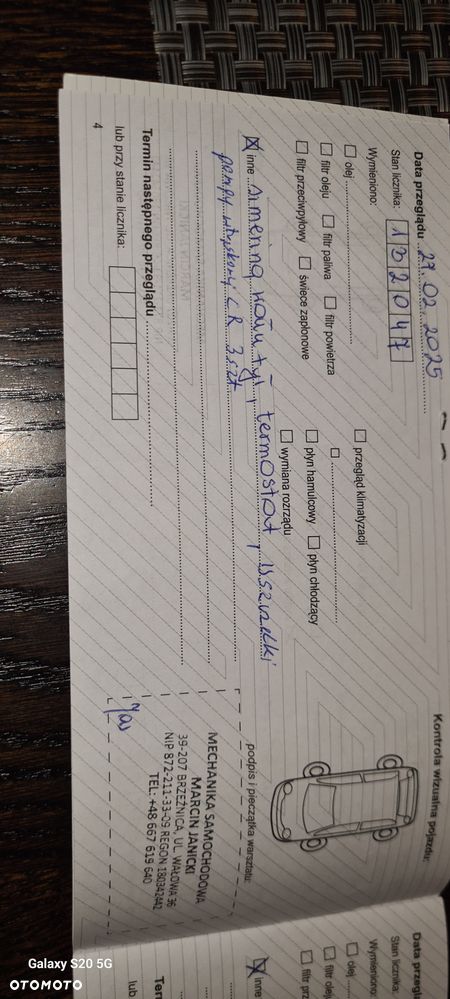 Data przeglądu 27.02.2025
Stan licznika: 132047
Wymieniono:
olej
filtr oleju filtr paliwa filtr powietrza
filtr przeciwpyłowy świece zapłonowe
przegląd klimatyzacji
płyn hamulcowy płyn chłodzący
wymiana rozrządu
inne termostat, uszczelki
pompy CR 3szt
Termin następnego przeglądu
lub przy stanie licznika:
4
Kontrola wizualna pojazdu:
podpis i pieczątka warsztatu:
MECHANIKA SAMOCHODOWA
MARCIN JANICKI
39-207 BRZEŹNICA, UL. WAŁOWA 36
NIP 872-211-33-09 REGON 180342442
TEL: +48 667 619 640
Data przeg
Stan licznika:
Wymieniono:
olej
filtr olej
filtr prz
inne
Ter
lub
Galaxy S20 5G
OTOMOTO